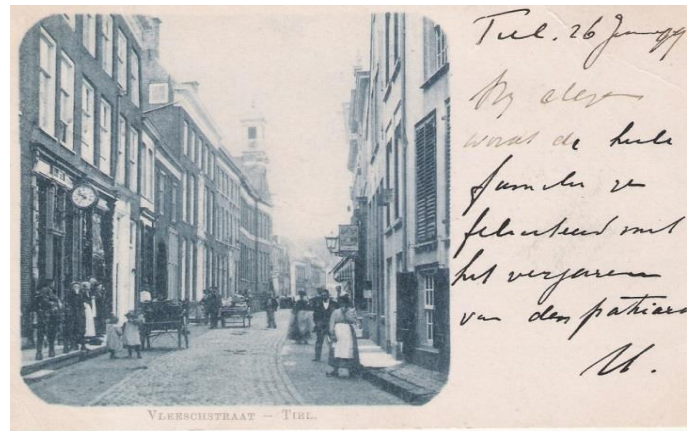 Tiel. 26
wordt de heele
familie ge
feliciteerd met
het verjaren
van den patriarch
VLEESCHSTRAAT – TIEL.